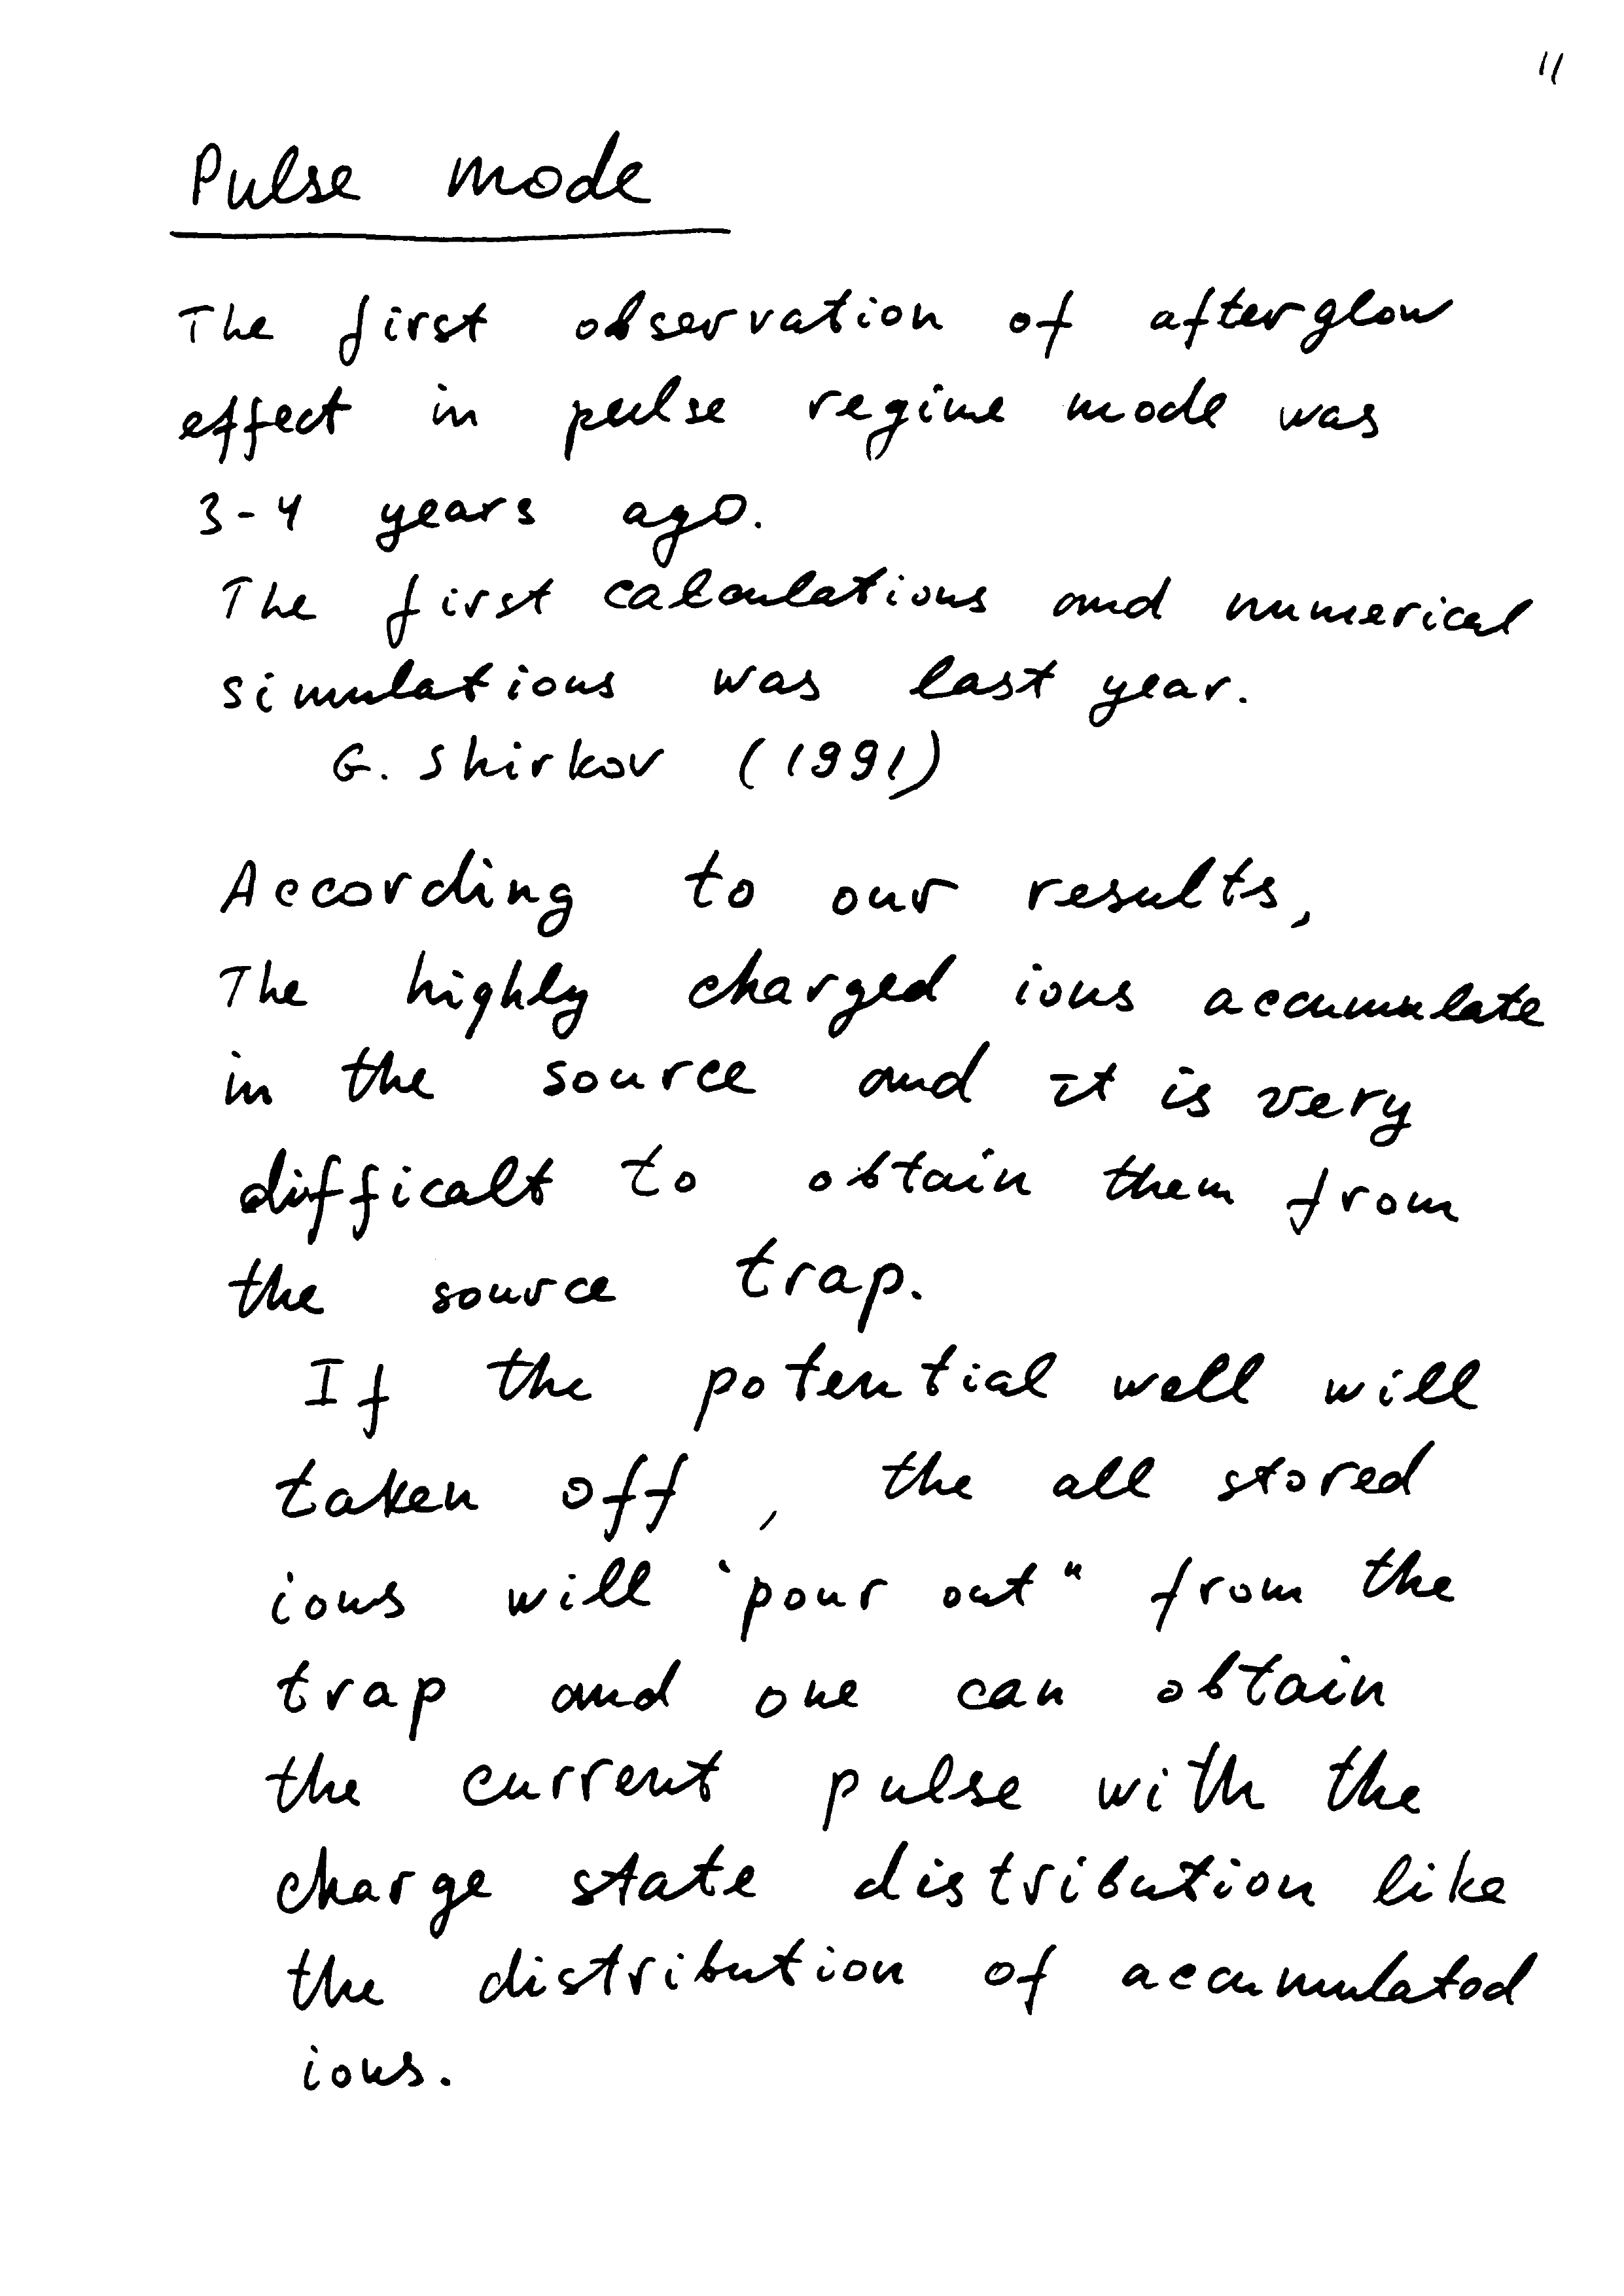 11
Pulse mode
The first observation of afterglow
effect in pulse regime mode was
3-4 years ago.
The first calculations and numerical
simulations was last year.
G. Shirkov (1991)
According to our results,
The highly charged ions accumulate
in the source and it is very
difficalt to obtain them from
the source trap.
If the potential well will
taken off, the all stored
ions will "pour out" from the
trap and one can obtain
the current pulse with the
charge state distribution like
the distribution of accumulated
ions.